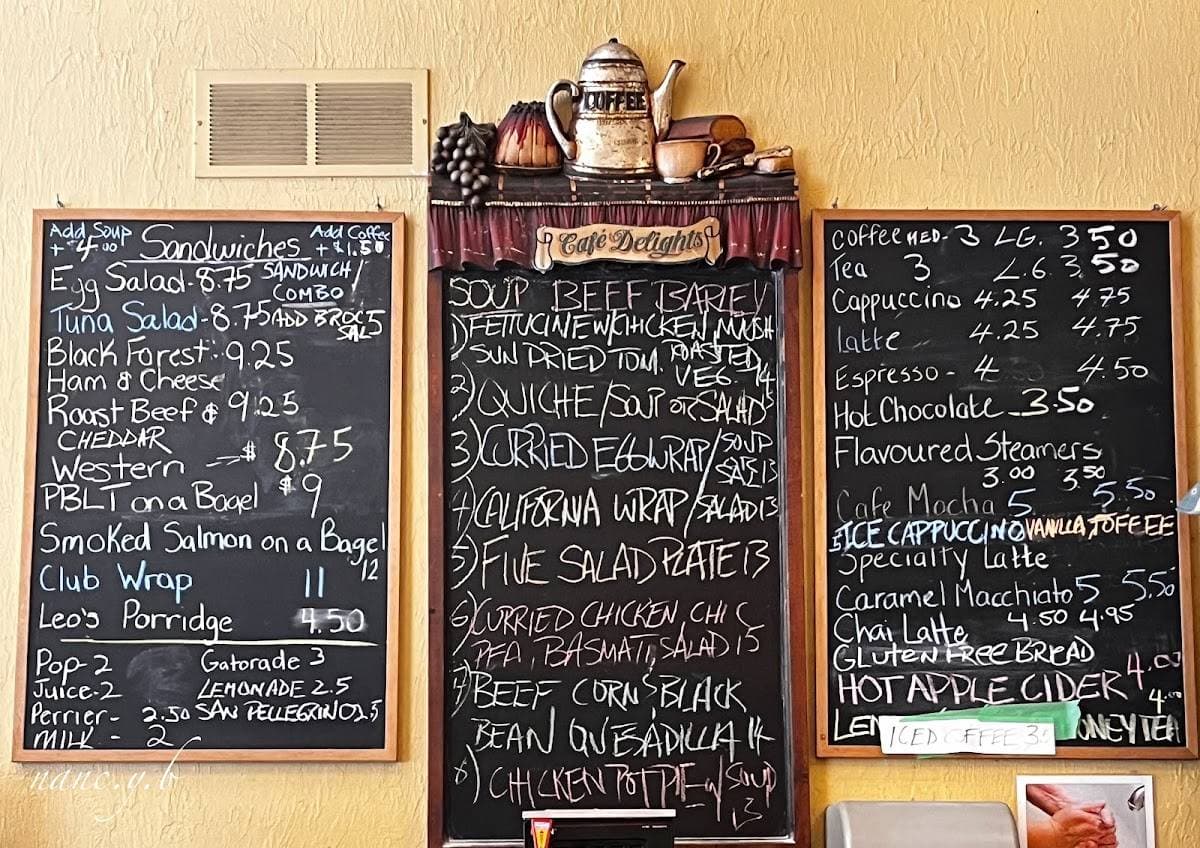 Add Soup
+ $4.00
Sandwiches
Add Coffee
+ $1.50
Egg Salad - 8.75
SANDWICH/
COMBO
Tuna Salad - 8.75
ADD BROC
SAL 5
Black Forest - 9.25
Ham & Cheese
Roast Beef & 9.25
CHEDDAR
Western - $ 8.75
PBLT on a Bagel $9
Smoked Salmon on a Bagel
12
Club Wrap 11
Leo's Porridge 4.50
Pop - 2 Gatorade 3
Juice - 2 LEMONADE 2.5
Perrier - 2.50 SAN PELLEGRINO 2.5
MILK - 2
nanc.y.b
COFFEE
Café Delights
SOUP BEEF BARLEY
1) FETTUCINE W/CHICKEN, MUSH
SUN DRIED TOM. ROASTED
VEG. 14
2) QUICHE/SOUP OR SALAD
3) CURRIED EGG WRAP/SOUP
SAL 13
4) CALIFORNIA WRAP/SALAD 13
5) FIVE SALAD PLATE 13
6) CURRIED CHICKEN, CHIC
PEA, BASMATI, SALAD 15
7) BEEF CORN & BLACK
BEAN QUESADILLA 14
8) CHICKEN POT PIE w/ SOUP
13
Coffee MED - 3 LG. 3.50
Tea 3 LG. 3.50
Cappuccino 4.25 4.75
Latte 4.25 4.75
Espresso - 4 4.50
Hot Chocolate - 3.50
Flavoured Steamers
3.00 3.50
Cafe Mocha 5 5.50
ICE CAPPUCCINO VANILLA, TOFFEE
Specialty Latte
Caramel Macchiato 5 5.50
Chai Latte 4.50 4.95
GLUTEN FREE BREAD
HOT APPLE CIDER 4.00
4.00
ICED COFFEE
TEA